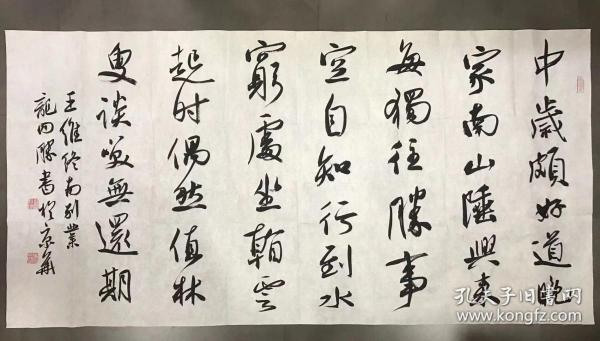 中歲頗好道晚
家南山陲興来
每獨往勝事
空自知行到水
窮處坐看雲
起时偶然值林
叟談笑無還期
王維终南别業
龍内勝書於京華
孔夫子旧书网
www.kongfz.com